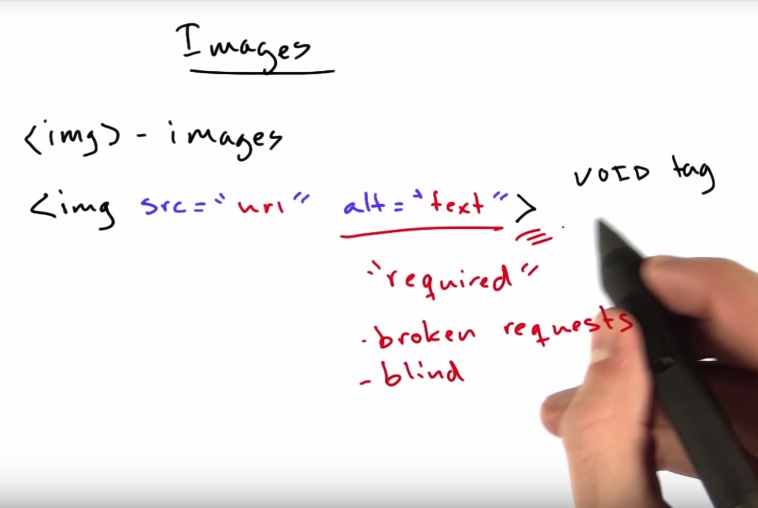 Images
<img> - images
<img src="url" alt="text">
VOID tag
"required"
- broken requests
- blind